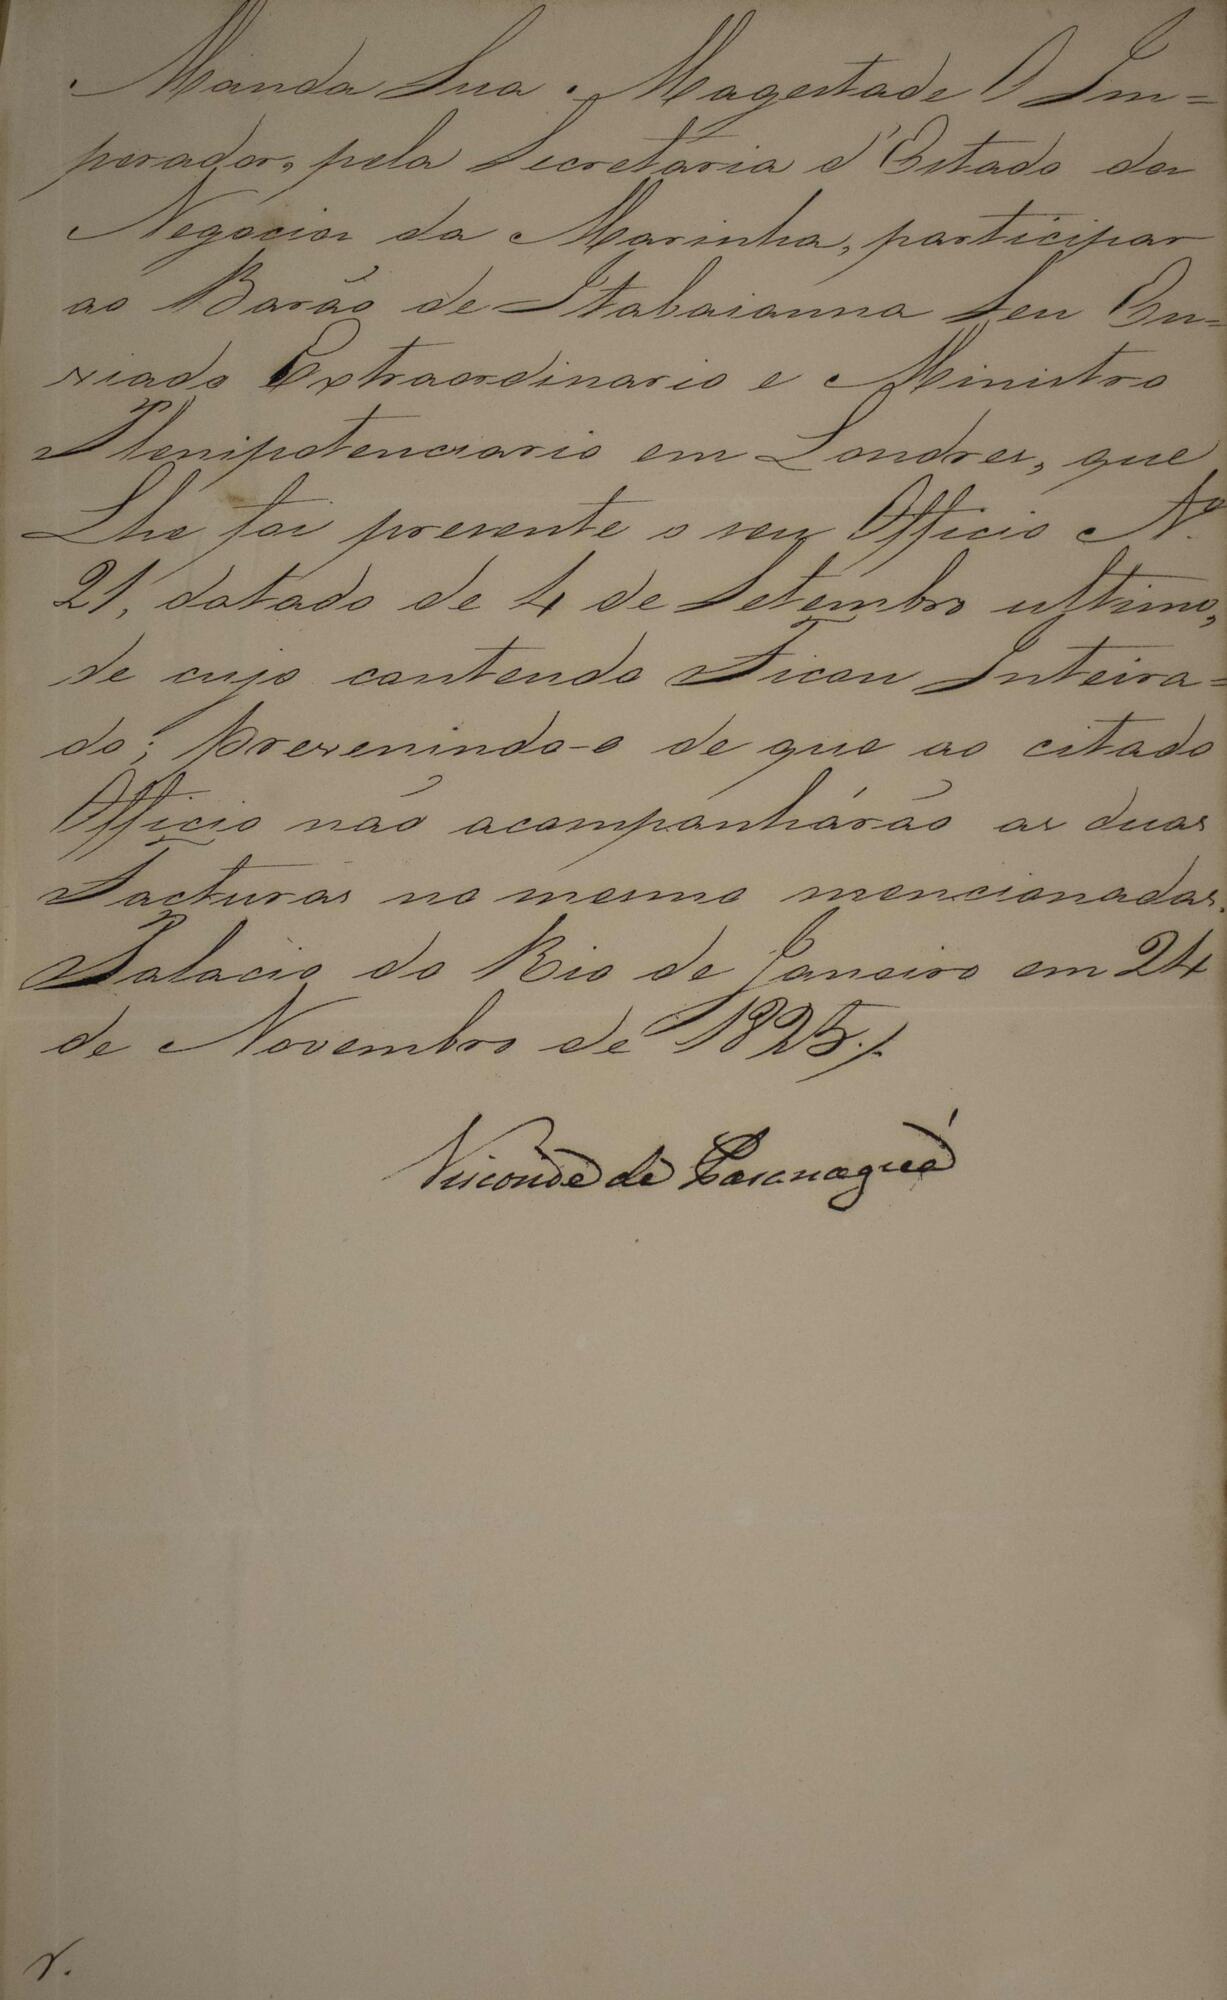 Manda Sua Magestade O Im=
perador, pela Secretaria d'Estado dos
Negocios da Marinha, participar
ao Barão de Itabaianna Seu En=
viado Extraordinario e Ministro
Plenipotenciario em Londres, que
Lhe foi presente o seu Officio Nº
21, datado de 4 de Setembro ultimo,
de cujo contendo Ficou Inteira=
do; Prevenindo-o de que ao citado
Officio não acompanhárão as duas
Facturas no mesmo mencionadas.
Palacio do Rio de Janeiro em 24
de Novembro de 1825./.
Visconde de Paranaguá